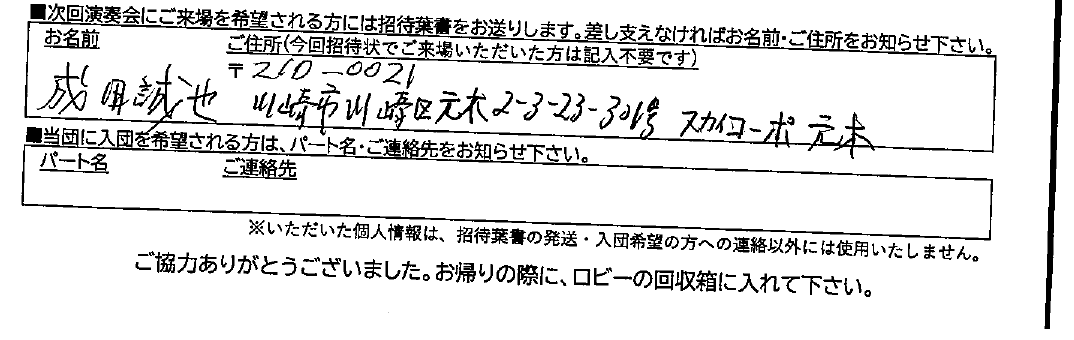 ■次回演奏会にご来場を希望される方には招待葉書をお送りします。差し支えなければお名前・ご住所をお知らせ下さい。
お名前 ご住所(今回招待状でご来場いただいた方は記入不要です)
〒210-0021
成田誠也 川崎市川崎区元木2-3-23-301号 スカイコーポ元木
■当団に入団を希望される方は、パート名・ご連絡先をお知らせ下さい。
パート名 ご連絡先
※いただいた個人情報は、招待葉書の発送・入団希望の方への連絡以外には使用いたしません。
ご協力ありがとうございました。お帰りの際に、ロビーの回収箱に入れて下さい。